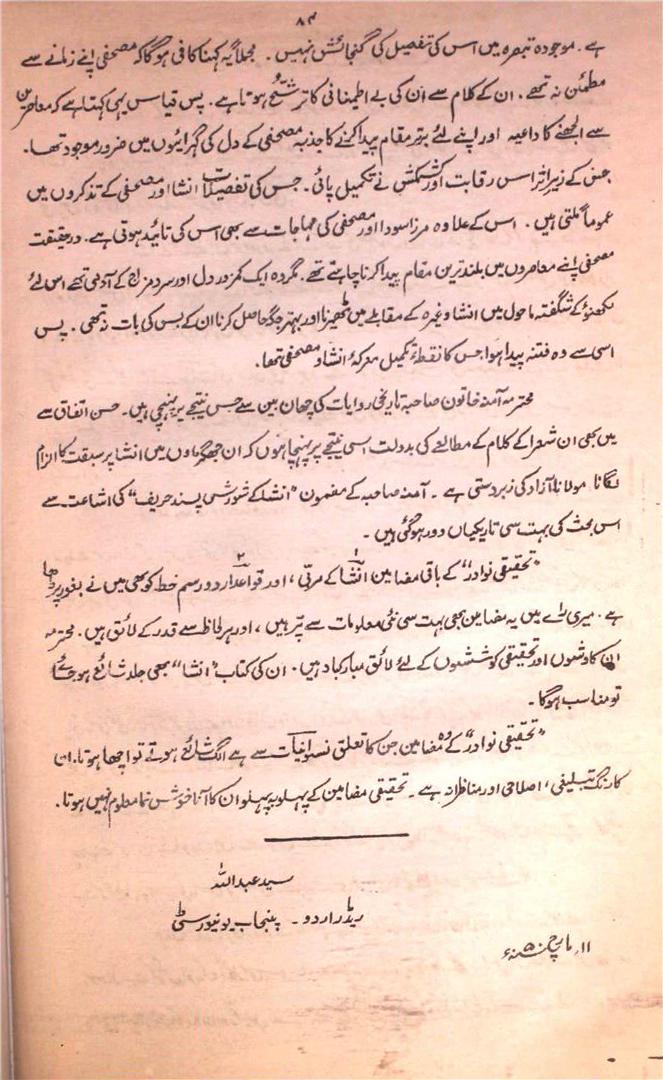 ۸۴
ہے۔ موجودہ تبصرہ میں اس کی تفصیل کی گنجائش نہیں۔ مجملاً یہ کہنا کافی ہوگا کہ مصحفی اپنے زمانے سے
مطمئن نہ تھے۔ ان کے کلام سے ان کی بے اطمینانی کا ترشح ہوتا ہے۔ پس قیاس یہی کہتا ہے کہ معاصرین
سے الجھنے کا داعیہ اور اپنے لئے برتر مقام پیدا کرنے کا جذبہ مصحفی کے دل کی گہرائیوں میں ضرور موجود تھا۔
جس کے زیر اثر اس رقابت اور کشمکش نے تکمیل پائی۔ جس کی تفصیلات انشا اور مصحفی کے تذکروں میں
عموماً ملتی ہیں۔ اس کے علاوہ مرزا سودا اور مصحفی کی مہاجات سے بھی اس کی تائید ہوتی ہے۔ درحقیقت
مصحفی اپنے معاصروں میں بلند ترین مقام پیدا کرنا چاہتے تھے۔ مگر وہ ایک کمزور دل اور سرد مزاج کے آدمی تھے اس لئے
لکھنؤ کے شگفتہ ماحول میں انشا وغیرہ کے مقابلے میں ٹھیرنا اور بہتر جگہ حاصل کرنا ان کے بس کی بات نہ تھی۔ پس
اسی سے وہ فتنہ پیدا ہوا جس کا نقطۂ تکمیل معرکۂ انشا و مصحفی تھا۔
محترمہ آمنہ خاتون صاحبہ تاریخی روایات کی چھان بین سے جس نتیجے پر پہنچی ہیں۔ حسن اتفاق سے
میں بھی ان شعرا کے کلام کے مطالعے کی بدولت اسی نتیجے پر پہنچا ہوں کہ ان جھگڑوں میں انشا پر سبقت کا الزام
لگانا مولانا آزاد کی زبردستی ہے۔ آمنہ صاحبہ کے مضمون "انشا کے شورش پسند حریف" کی اشاعت سے
اس بحث کی بہت سی تاریکیاں دور ہوگئی ہیں۔
"تحقیقی نوادر" کے باقی مضامین ۱ انشا کے مربی، اور ۲ قواعد اردو رسم خط کو بھی میں نے بغور پڑھا
ہے۔ میری رائے میں یہ مضامین بھی بہت سی نئی معلومات سے پر ہیں، اور ہر لحاظ سے قدر کے لائق ہیں۔ محترمہ
ان کاوشوں اور تحقیقی کوششوں کے لئے لائق مبارکباد ہیں۔ ان کی کتاب "انشا" بھی جلد شائع ہوجائے
تو مناسب ہوگا۔
"تحقیقی نوادر" کے وہ مضامین جن کا تعلق نسوانیات سے ہے الگ شائع ہوتے تو اچھا ہوتا۔ ان
کا رنگ تبلیغی، اصلاحی اور مناظرانہ ہے۔ تحقیقی مضامین کے پہلو بہ پہلو ان کا آنا خوش نما معلوم نہیں ہوتا۔
سید عبداللہ
ریڈر اردو۔ پنجاب یونیورسٹی
۱۱؍ مارچ ۵۰ سنہء